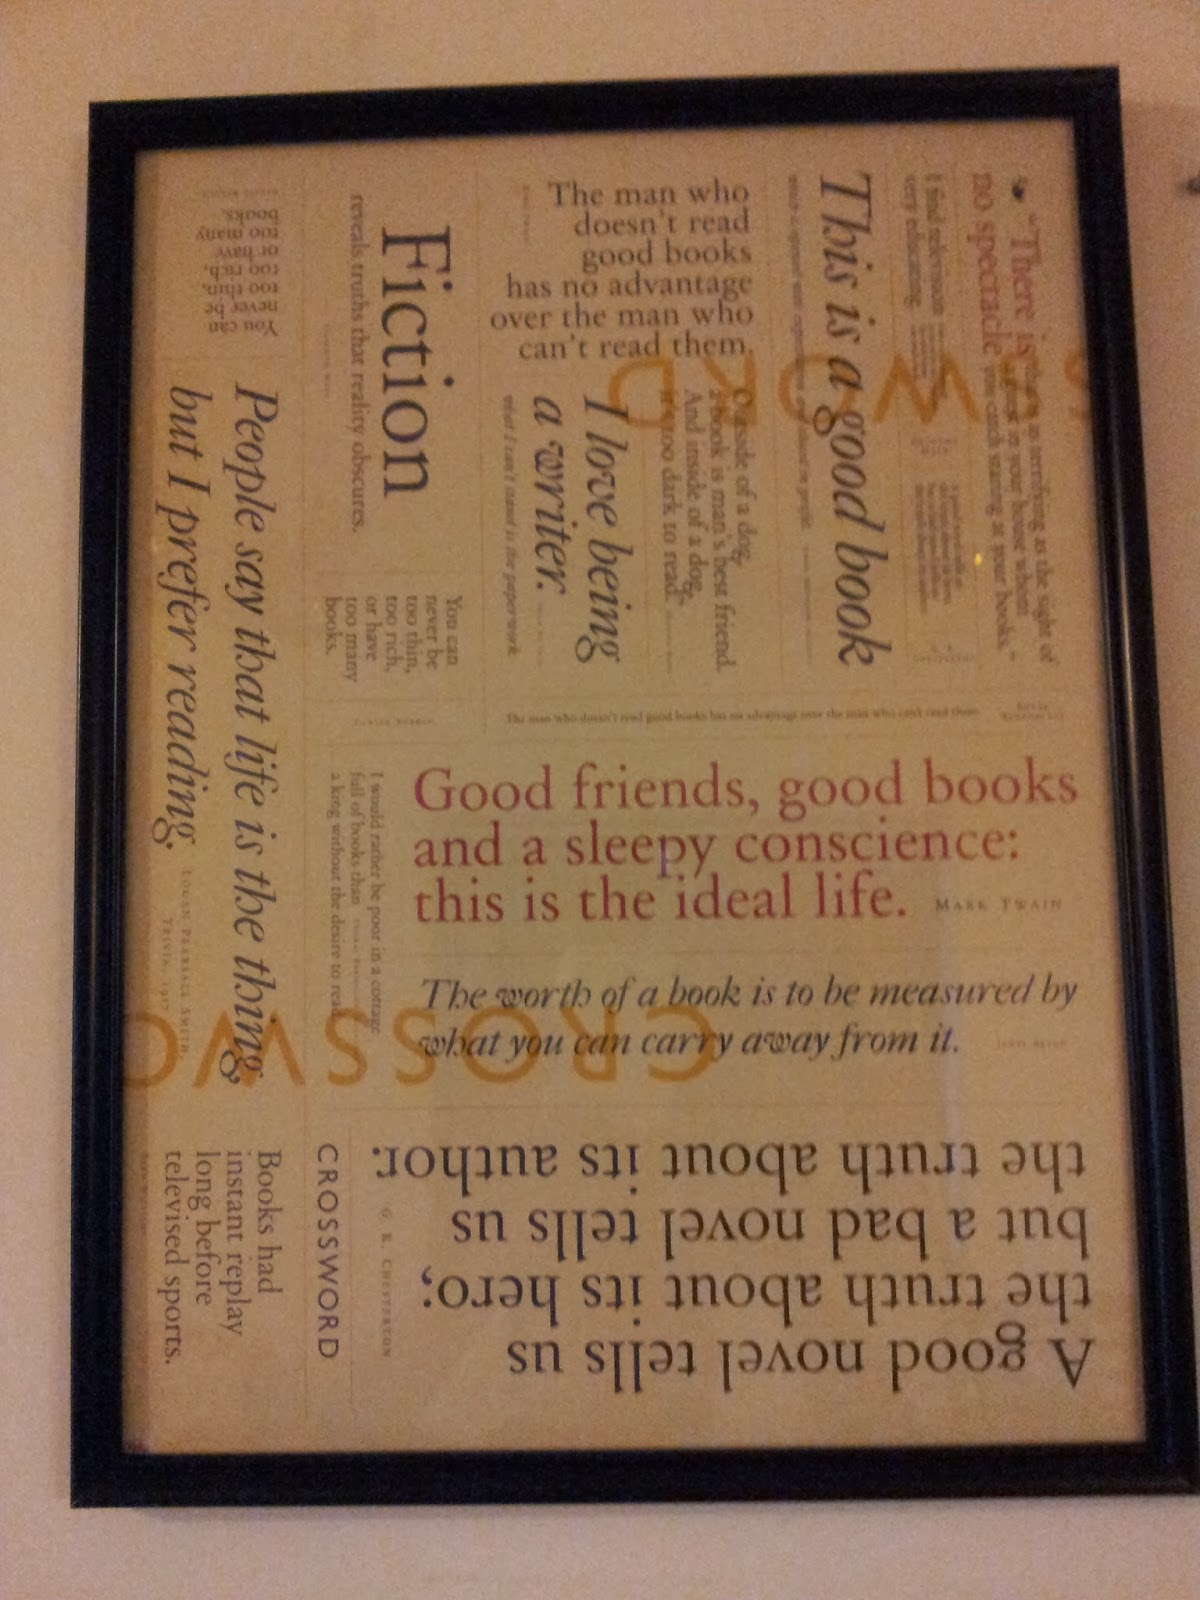 "There is
no spectacle
that is as terrifying as the sight of
a guest in your house whom
you catch staring at your books."
I find television
very educating.
This is a good book
The man who
doesn't read
good books
has no advantage
over the man who
can't read them.
Outside of a dog,
a book is man's best friend.
And inside of a dog,
it's too dark to read.
I love being
a writer.
what I can't stand is the paperwork
Fiction
reveals truths that reality obscures.
You can
never be
too thin,
too rich,
or have
too many
books.
You can
never be
too thin,
too rich,
or have
too many
books.
The man who doesn't read good books has no advantage over the man who can't read them.
People say that life is the thing,
but I prefer reading.
LOGAN PEARSALL SMITH
TRIVIA, 1917
Good friends, good books
and a sleepy conscience:
this is the ideal life. MARK TWAIN
I would rather be poor in a cottage
full of books than
a king without the desire to read
The worth of a book is to be measured by
what you can carry away from it.
CROSSWO
WORD
A good novel tells us
the truth about its hero;
but a bad novel tells us
the truth about its author.
G. K. CHESTERTON
CROSSWORD
Books had
instant replay
long before
televised sports.